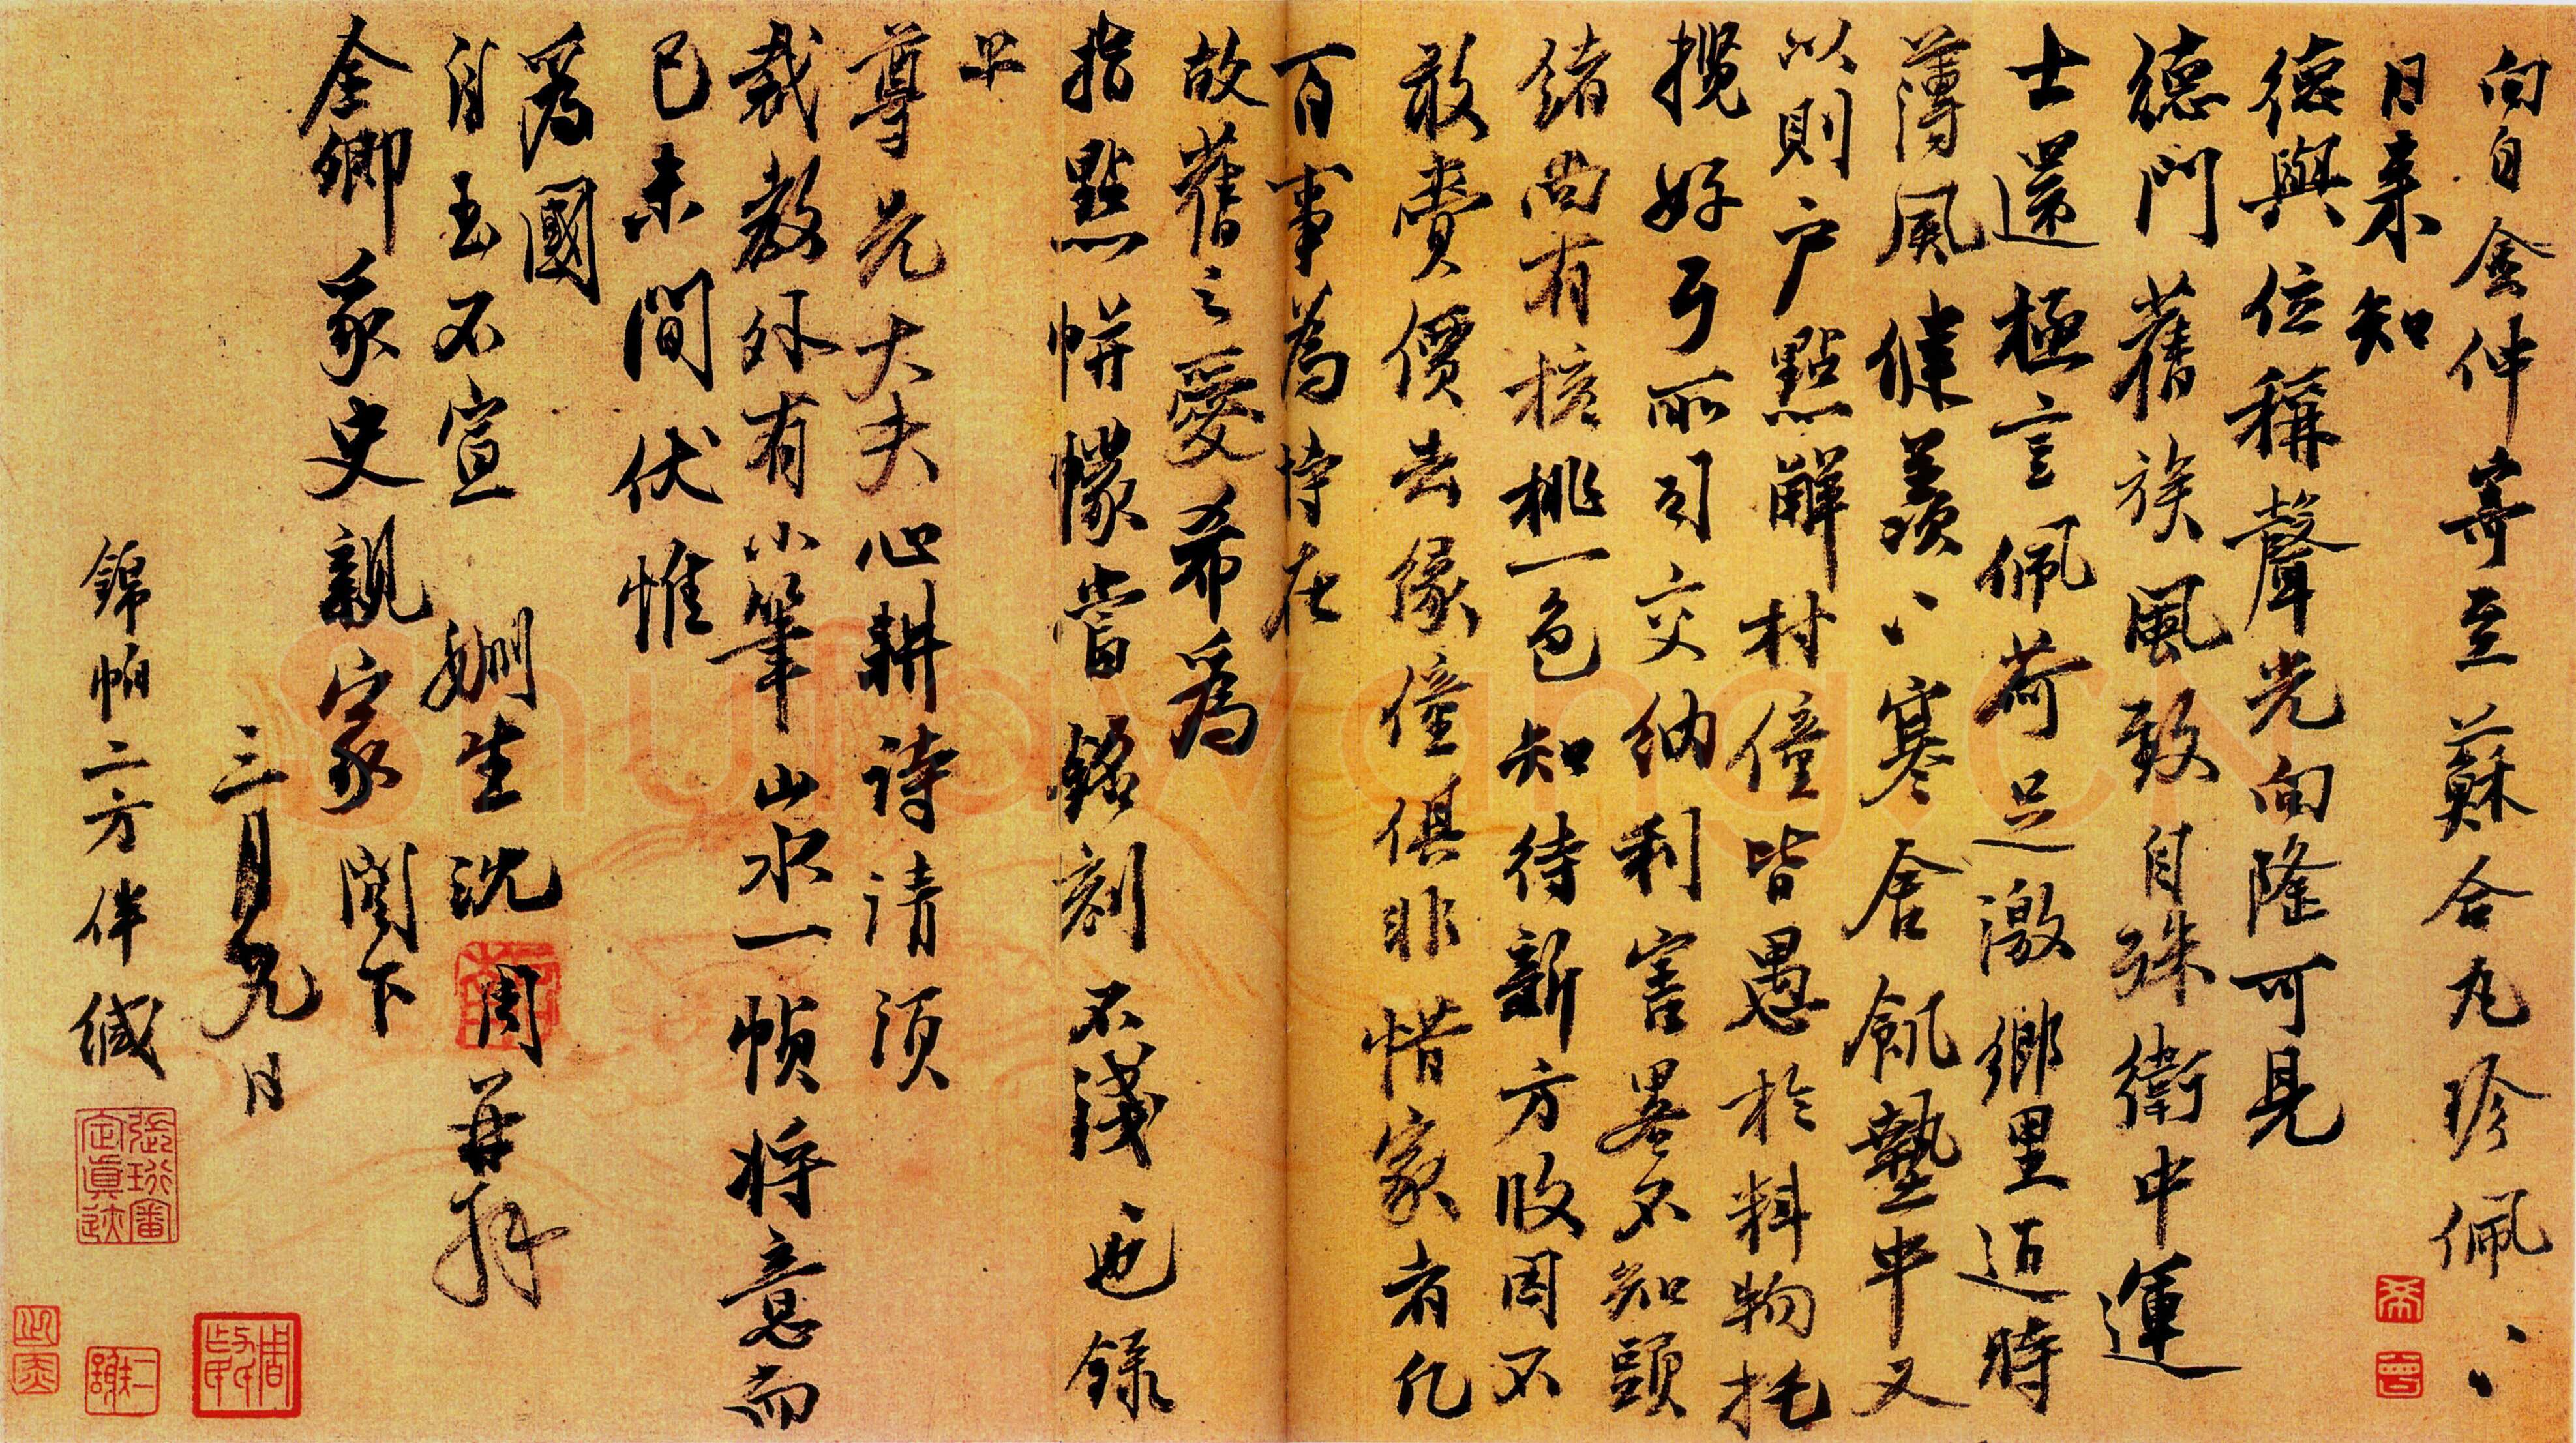 向自金仲寄至蘇合丸珍佩〻
日來知
德與位稱聲光向隆可見
德門舊族風致自殊衛中運
士還極言佩荷足激鄉里迫時
薄風健羨〻寒舍飢墊中又
以則户點解村僮皆愚於料物托
攬好歹所司交納利害畧不知頭
緒尚有擦桃一色知待新方收因不
敢賣價去緣僮俱非惜家者凡
百事為恃在
故舊之愛希爲
指點帡幪當銘刻不淺也錄
上
尊先大夫心耕詩請須
裁教外有小筆山水一幀將意而
已未間伏惟
爲國
自玉不宣 姻生沈周再拜
奎卿豕史親家閣下
三月九日
錦帕二方伴緘
張珩審定真迹
Shufawang.CN